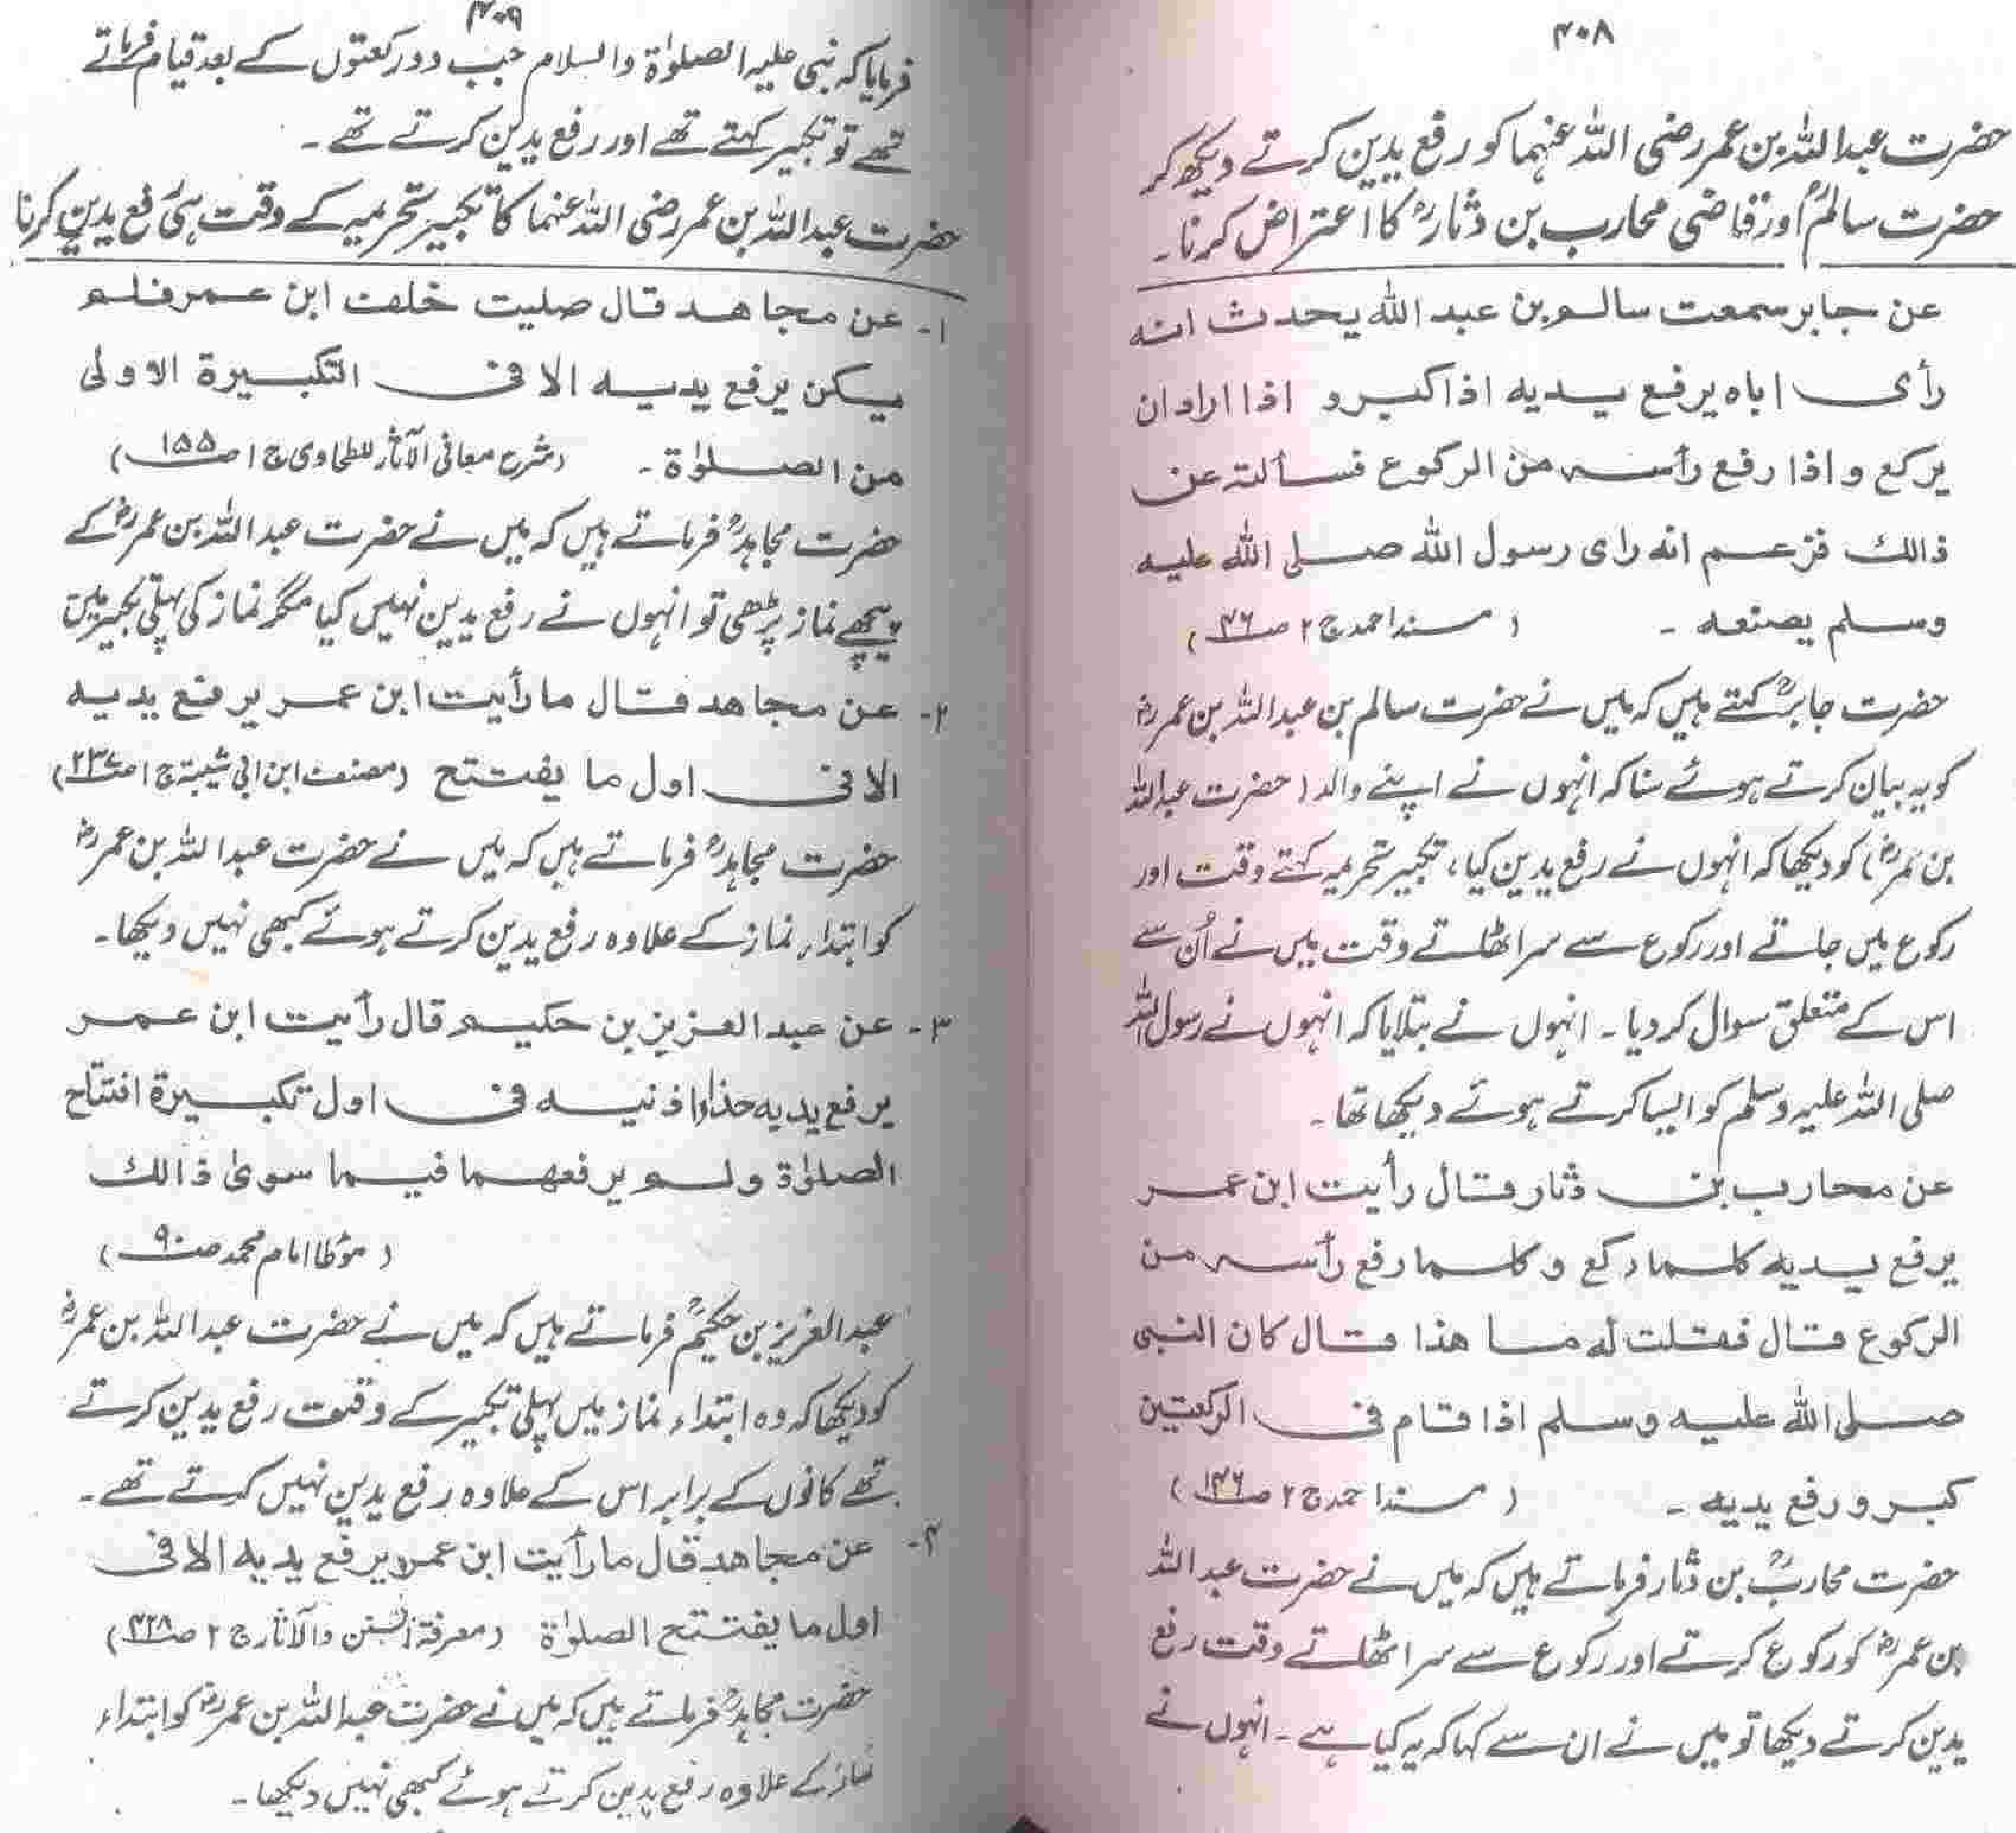 ۴۰۸
حضرت عبداللہ بن عمر رضی اللہ عنہما کو رفع یدین کرتے دیکھ کر
حضرت سالمؒ اور قاضی محارب بن دثارؒ کا اعتراض کرنا۔
عن جابر سمعت سالم بن عبد اللہ یحدث انہ
رأی اباہ یرفع یدیہ اذا کبر و اذا اراد ان
یرکع و اذا رفع رأسہ من الرکوع فسألتہ عن
ذالک فزعم انہ رای رسول اللہ صلی اللہ علیہ
وسلم یصنعہ - (مسند احمد ج ۲ ص۴۶)
حضرت جابرؒ کہتے ہیں کہ میں نے حضرت سالم بن عبداللہ بن عمرؓ
کو یہ بیان کرتے ہوئے سنا کہ انہوں نے اپنے والد (حضرت عبداللہ
بن عمرؓ) کو دیکھا کہ انہوں نے رفع یدین کیا، تکبیر تحریمہ کہتے وقت اور
رکوع میں جاتے اور رکوع سے سر اٹھاتے وقت میں نے اُن سے
اس کے متعلق سوال کر دیا۔ انہوں نے بتلایا کہ انہوں نے رسول اللہ
صلی اللہ علیہ وسلم کو ایسا کرتے ہوئے دیکھا تھا۔
عن محارب بن دثار قال رأیت ابن عمر
یرفع یدیہ کلما رکع و کلما رفع رأسہ من
الرکوع قال فقلت لہ ما ھذا قال کان النبی
صلی اللہ علیہ وسلم اذا قام فی الرکعتین
کبر و رفع یدیہ - (مسند احمد ج ۲ ص۱۴۶)
حضرت محاربؒ بن دثار فرماتے ہیں کہ میں نے حضرت عبداللہ
بن عمرؓ کو رکوع کرتے اور رکوع سے سر اٹھاتے وقت رفع
یدین کرتے دیکھا تو میں نے ان سے کہا کہ یہ کیا ہے۔ انہوں نے
۴۰۹
فرمایا کہ نبی علیہ الصلوٰۃ والسلام جب دو رکعتوں کے بعد قیام فرماتے
تھے تو تکبیر کہتے تھے اور رفع یدین کرتے تھے۔
حضرت عبداللہ بن عمر رضی اللہ عنہما کا تکبیر تحریمہ کے وقت ہی رفع یدین کرنا
۱- عن مجاھد قال صلیت خلف ابن عمر فلم
یکن یرفع یدیہ الا فی التکبیرۃ الاولی
من الصلوٰۃ - (شرح معانی الآثار للطحاوی ج ۱ ص۱۵۵)
حضرت مجاہدؒ فرماتے ہیں کہ میں نے حضرت عبداللہ بن عمرؓ کے
پیچھے نماز پڑھی تو انہوں نے رفع یدین نہیں کیا مگر نماز کی پہلی تکبیر میں
۲- عن مجاھد قال ما رأیت ابن عمر یرفع یدیہ
الا فی اول ما یفتتح (مصنف ابن ابی شیبۃ ج ۱ ص۲۳۷)
حضرت مجاہدؒ فرماتے ہیں کہ میں نے حضرت عبداللہ بن عمرؓ
کو ابتداء نماز کے علاوہ رفع یدین کرتے ہوئے کبھی نہیں دیکھا۔
۳- عن عبد العزیز بن حکیم قال رأیت ابن عمر
یرفع یدیہ حذاء اذنیہ فی اول تکبیرۃ افتتاح
الصلوٰۃ ولم یرفعھما فیما سویٰ ذالک
(مؤطا امام محمد ص۹۰)
عبدالعزیز بن حکیمؒ فرماتے ہیں کہ میں نے حضرت عبداللہ بن عمرؓ
کو دیکھا کہ وہ ابتداء نماز میں پہلی تکبیر کے وقت رفع یدین کرتے
تھے کانوں کے برابر اس کے علاوہ رفع یدین نہیں کرتے تھے۔
۴- عن مجاھد قال ما رأیت ابن عمر یرفع یدیہ الا فی
اول ما یفتتح الصلوٰۃ (معرفۃ السنن والآثار ج ۲ ص۴۲۸)
حضرت مجاہدؒ فرماتے ہیں کہ میں نے حضرت عبداللہ بن عمرؓ کو ابتداء
نماز کے علاوہ رفع یدین کرتے ہوئے کبھی نہیں دیکھا۔